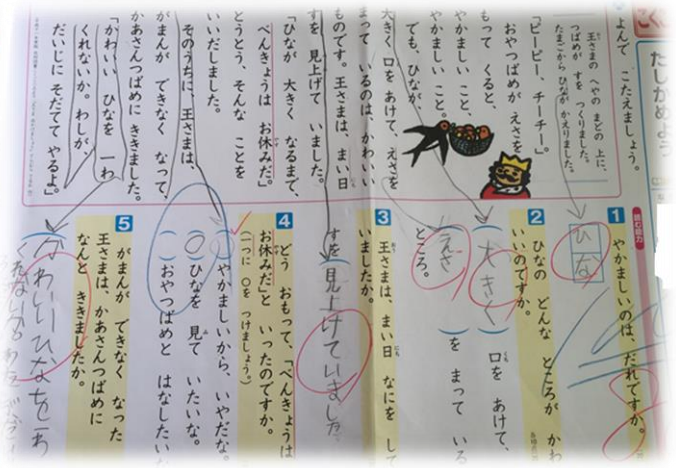 こく
たしかめよう
よんで こたえましょう。
王さまの へやの まどの 上に、
つばめが すを つくりました。
たまごから ひなが かえりました。
「ピーピー、チーチー。」
おやつばめが えさを
もって くると、
やかましいこと、
やかましいこと。
でも、ひなが、
大きく 口を あけて、えさを
まって いるのは、かわいい
ものです。王さまは、まい日
すを 見上げて いました。
「ひなが 大きく なるまで、
べんきょうは お休みだ。」
とうとう、そんな ことを
いいだしました。
そのうちに、王さまは、
がまんが できなく なって、
かあさんつばめに ききました。
「かわいい ひなを 一わ
くれないか。わしが、
だいじに そだてて やるよ。」
読む能力
1 やかましいのは、だれですか。
ひな
2 ひなの どんな ところが かわ
いいのですか。
大きく 口を あけて、
えさ を まって いる
ところ。
3 王さまは、まい日 なにを して
いましたか。
すを 見上げていました。
4 どう おもって、「べんきょうは
お休みだ」と いったのですか。
(一つに ○を つけましょう。)
やかましいから、いやだな。
○ ひなを 見て いたいな。
おやつばめと はなしたい
5 がまんが できなく なった
王さまは、かあさんつばめに
なんと ききましたか。
かわいいひなを一わ
くれないか